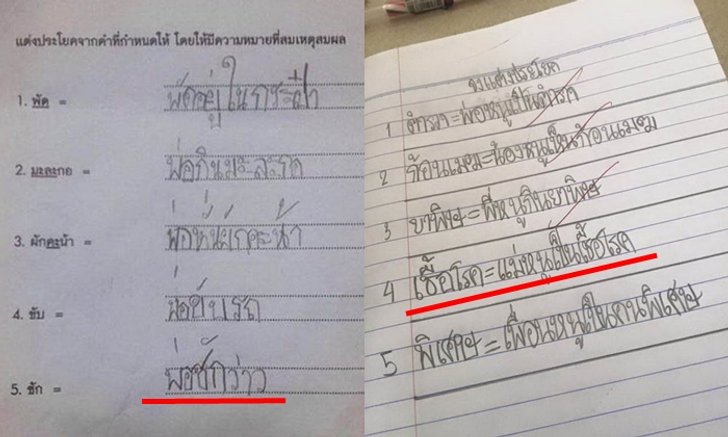 แต่งประโยคจากคำที่กำหนดให้ โดยให้มีความหมายที่สมเหตุสมผล
1. พัด = พัดอยู่ในกระเป๋า
2. มะละกอ = พ่อกินมะละกอ
3. ผักคะน้า = พ่อหั่นผักคะน้า
4. ขับ = พ่อขับรถ
5. ชัก = พ่อชักว่าว
จงแต่งประโยค
1 ตำรวจ=พ่อหนูเป็นตำรวจ
2 ก้อนเมฆ=น้องหนูเห็นก้อนเมฆ
3 ยาพิษ=พี่หนูกินยาพิษ
4 เชื้อโรค=แม่หนูเป็นเชื้อโรค
5 พิเศษ=เพื่อนหนูเป็นคนพิเศษ